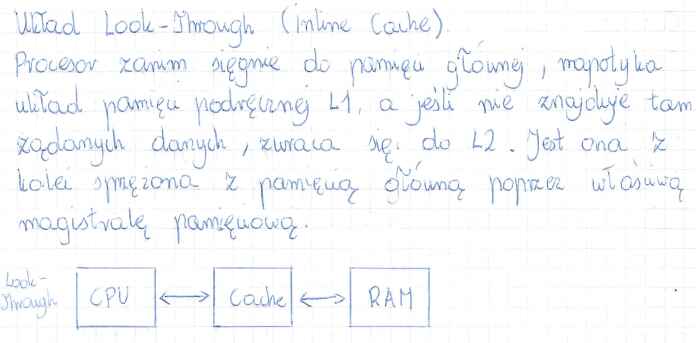 Układ Look-Through (inline Cache).
Procesor zanim sięgnie do pamięci głównej, napotyka
układ pamięci podręcznej L1, a jeśli nie znajduje tam
żądanych danych, zwraca się do L2. Jest ona z
kolei sprzężona z pamięcią główną poprzez właściwą
magistralę pamięciową.
Look-
Through
CPU
Cache
RAM